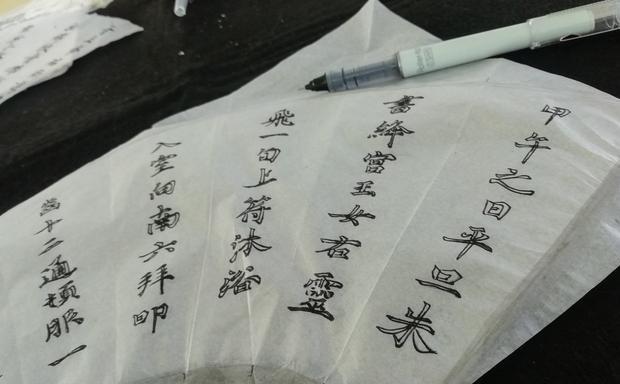 甲午之日平旦朱
書絳宮玉女右靈
飛一旬上符沐浴
入室向南六拜叩
齒十二通頓服一